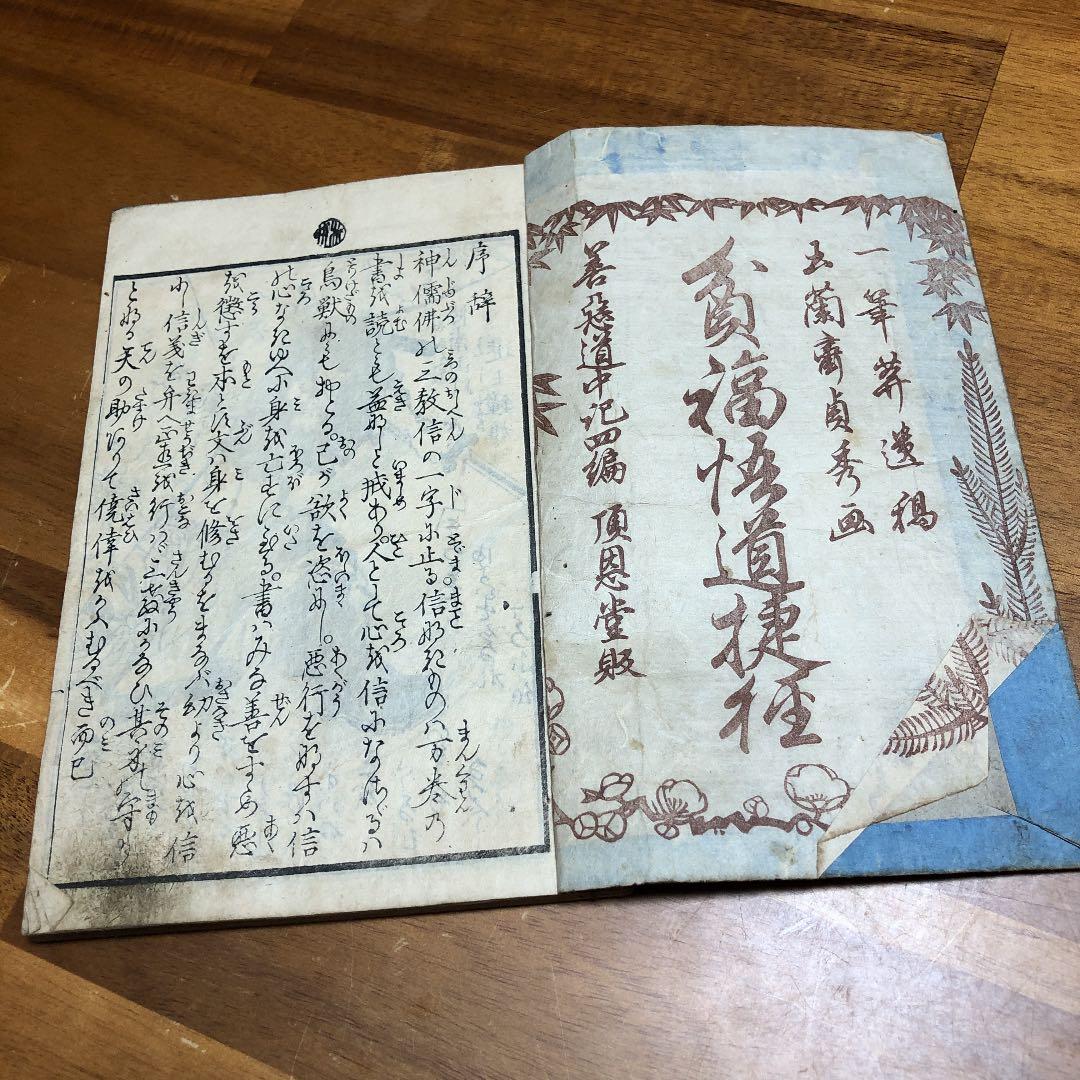 一筆葊遺稿
玉蘭齋貞秀画
貧福悟道捷径
善惡道中記四編 頂恩堂販
序辞
神儒佛の三教信の一字に止る信なきものハ万巻乃
書を読とも益なしと戒あり。人として心を信になさゞるハ
鳥獣にも劣る。己が欲を恣にし。悪行をなすハ信
の心なきゆへに身を亡すに至る。書ハみな善をすゝめ悪
を懲すを本とす文ハ身を修むるをまなバ幼より心を信
にし信義を弁へ正直を行ハゞ三教にかなひ其身を守
となる天の助ありて僥倖を得べき而已